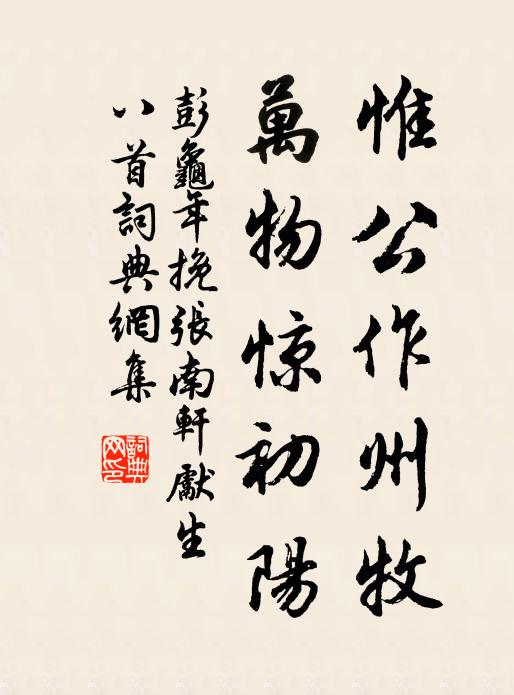 惟公作州牧
萬物惊初陽
彭龜年挽張南軒獻生
八首詞典網集
詞典网印